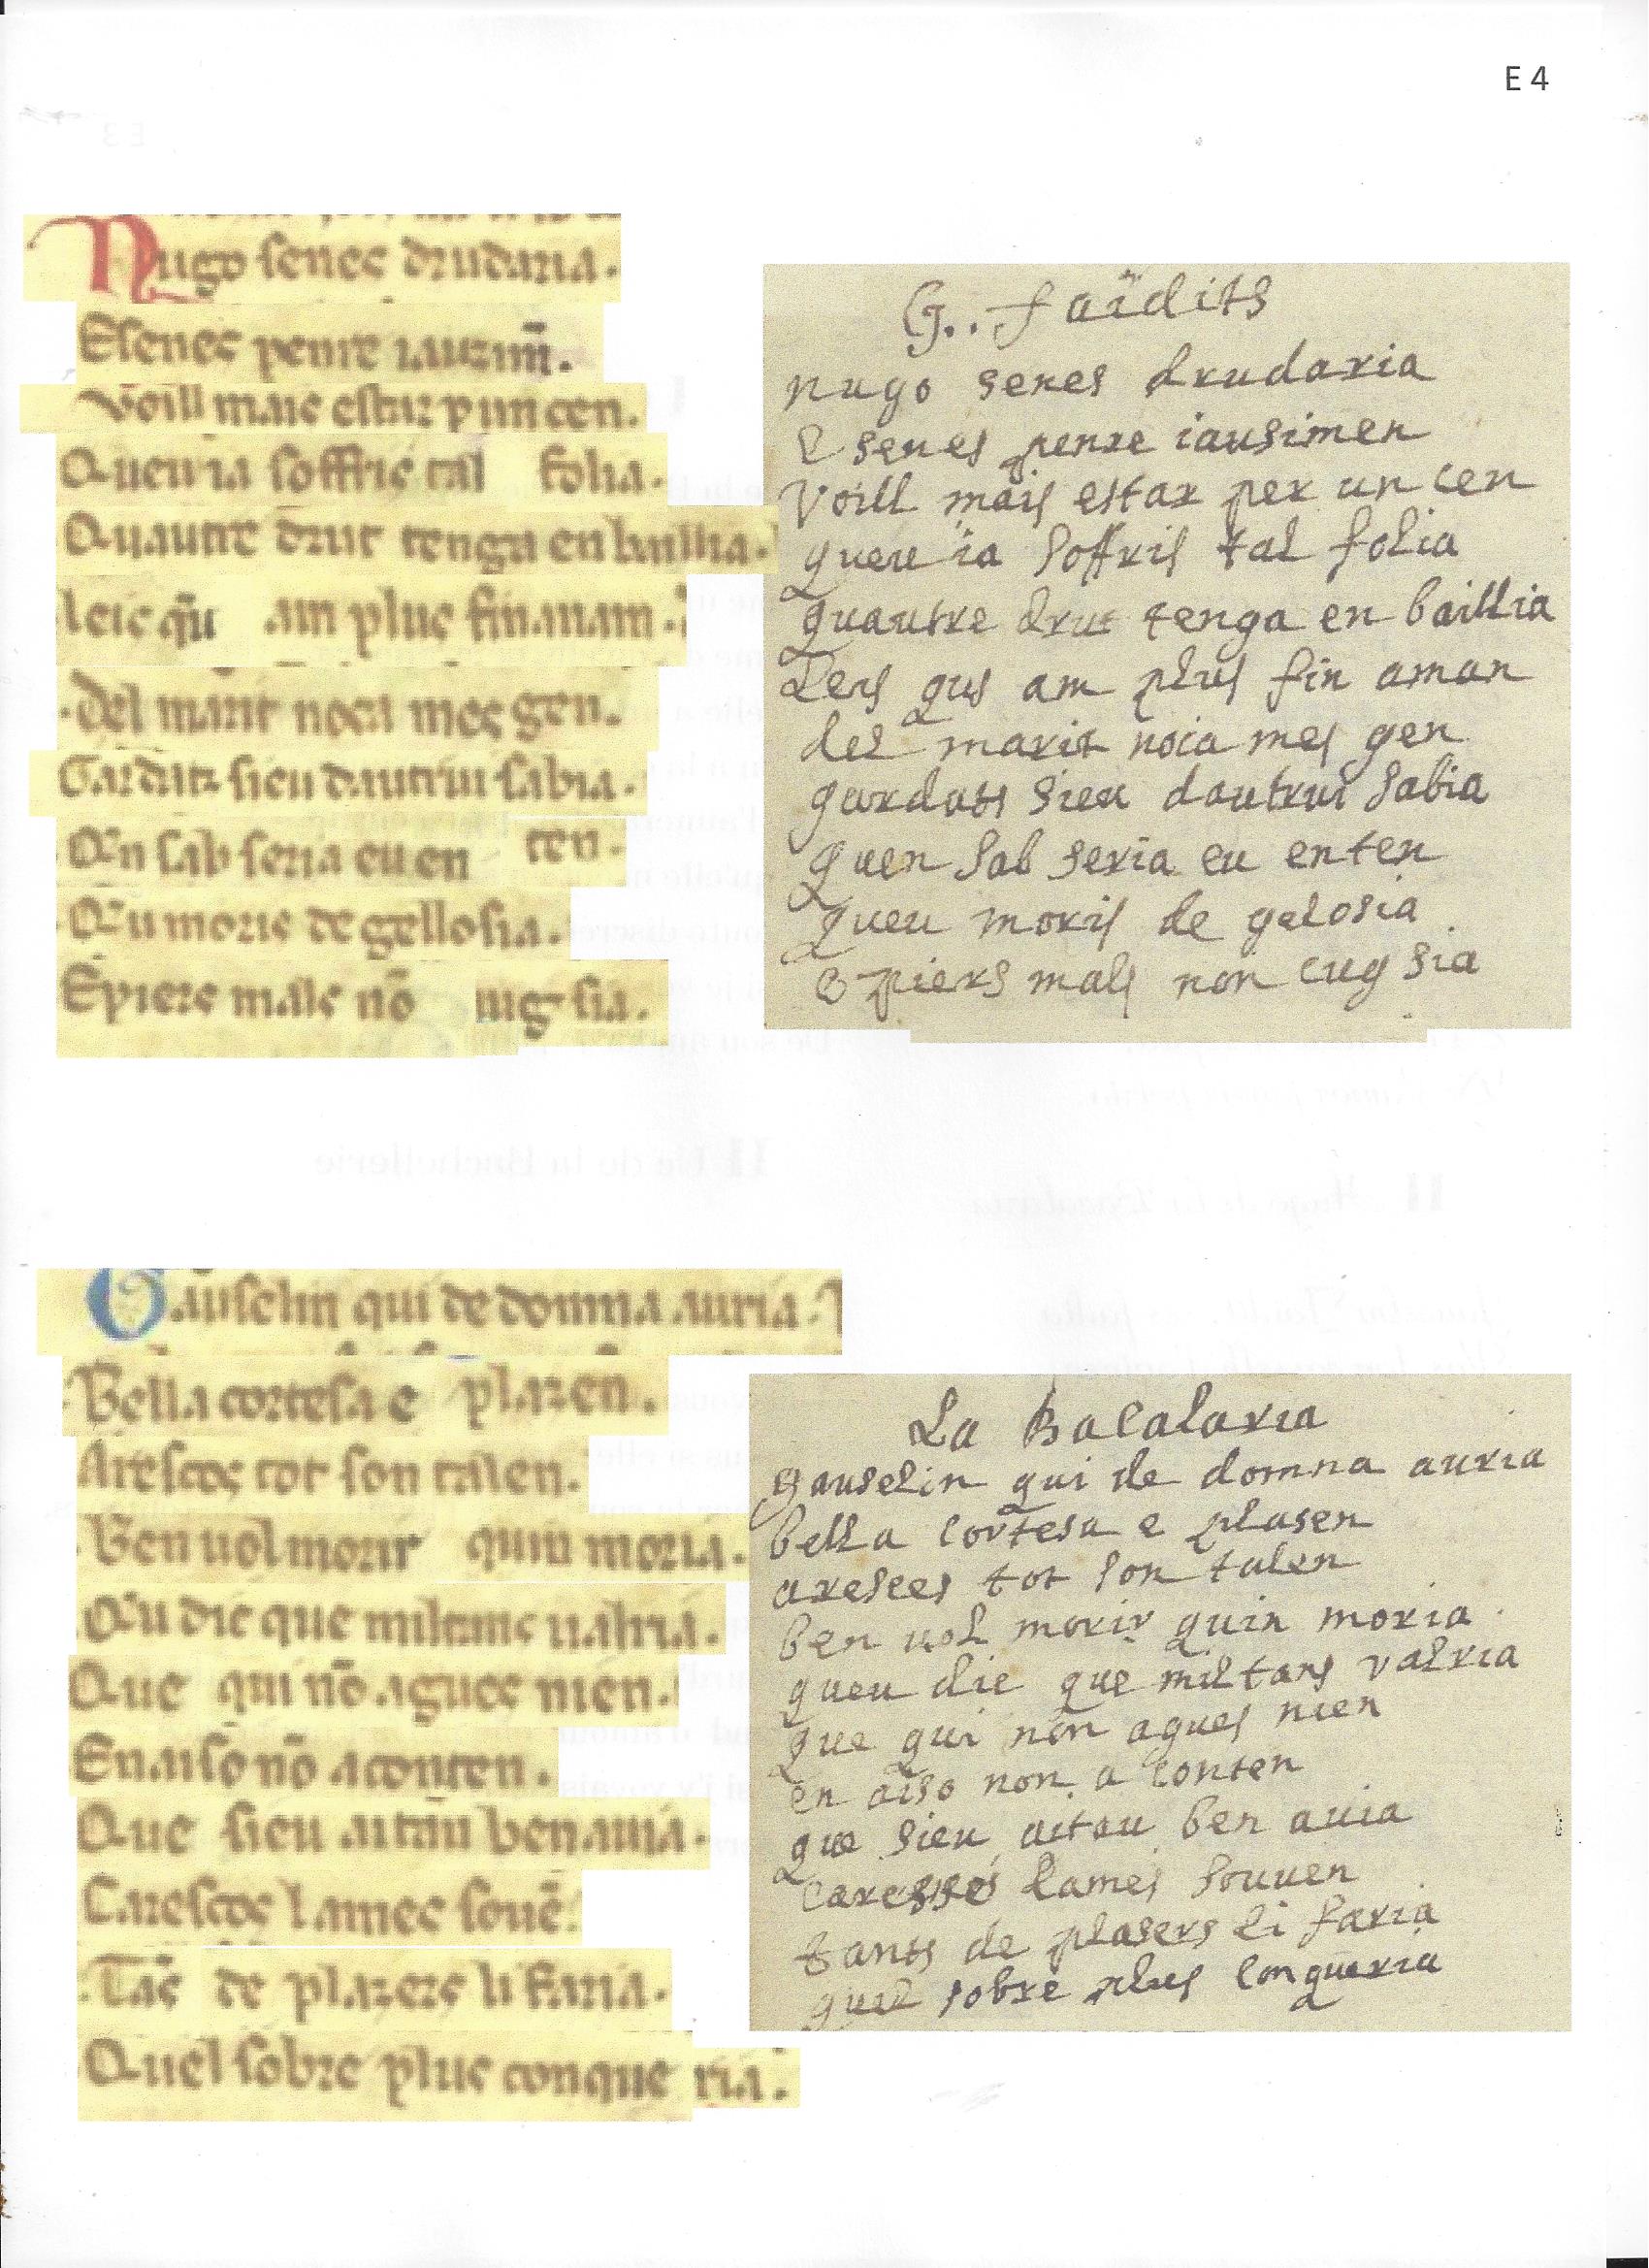 E 4
Nugo senes drudaria.
Esenes penre iauzim̄.
Voill mais estar p un cen.
Queu ia soffris tal folia.
Quautre drut tenga en baillia.
leis q̄u am plus fin aman.
Del marit noca mes gen.
Gardatz sieu dautrui sabia.
Qen sab seria eu en ten.
Qeu moris de gellosia.
E piers mals nō cug sia.
G.. faidits
nugo senes drudaria
E senes penre iausimen
Voill mais estar per un cen
queu ia soffris tal folia
quautre drut tenga en baillia
Leis qus am plus fin aman
del marit noia mes gen
gardats sieu dautrui sabia
quen sab seria eu enten
queu moris de gelosia
E piers mals non cug sia
Gauselin qui de domna auria.
Bella cortesa e plazen.
Arescos tot son talen.
Ben uol morir quin moria.
Qeu dic que miltans ualria.
Que qui nō agues nien.
En aiso nō a conten.
Que sieu aitau ben auia.
Carescos lames souē.
Tās de plazers li faria.
Quel sobre plus conque ria.
La Bacalaria
Gauselin qui de domna auria
bella cortesa e plasen
aresces tot son talen
ben uol morir quin moria
queu die que miltans valria
que qui non agues nien
en aiso non a conten
que sieu aitau ben auia
caresses lames souuen
tants de plasers li faria
quel sobre plus conqueria